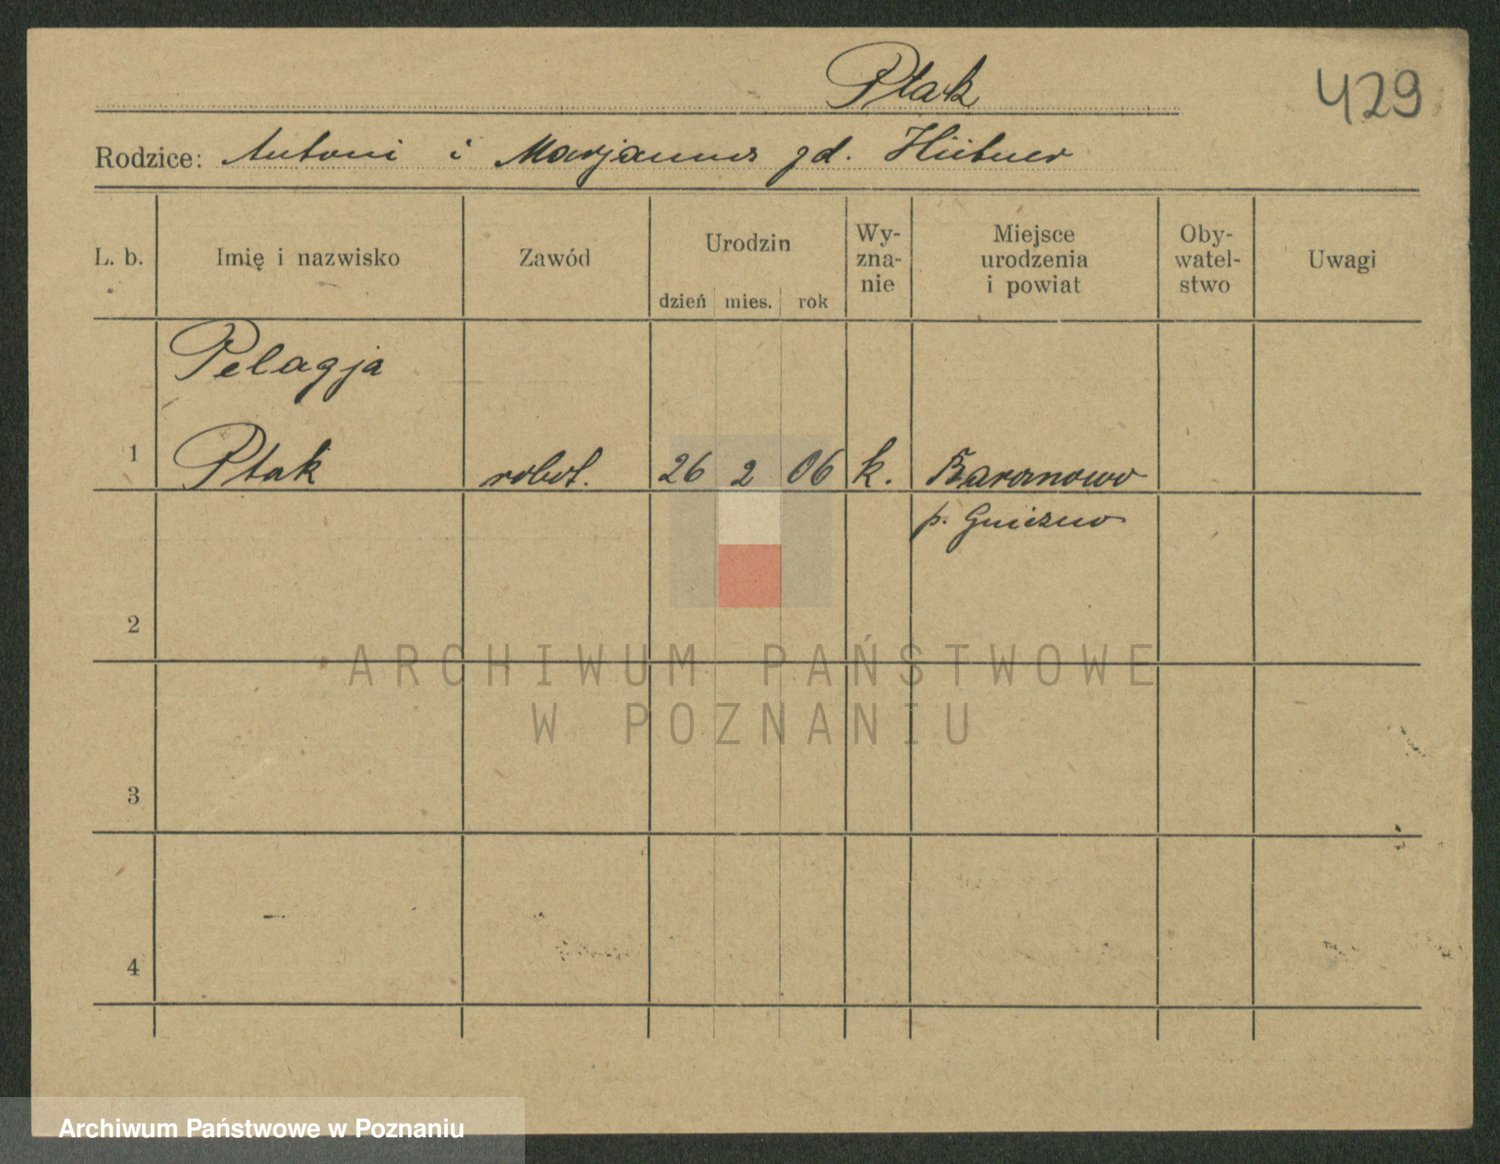 Ptak
429
Rodzice: Antoni i Marjanna zd. Hübner
L. b.
Imię i nazwisko
Zawód
Urodzin
dzień mies. rok
Wy-
zna-
nie
Miejsce
urodzenia
i powiat
Oby-
watel-
stwo
Uwagi
Pelagja
1 Ptak robot. 26 2 06 k. Baranowo
p. Gniezno
2
ARCHIWUM PAŃSTWOWE
W POZNANIU
3
4
Archiwum Państwowe w Poznaniu